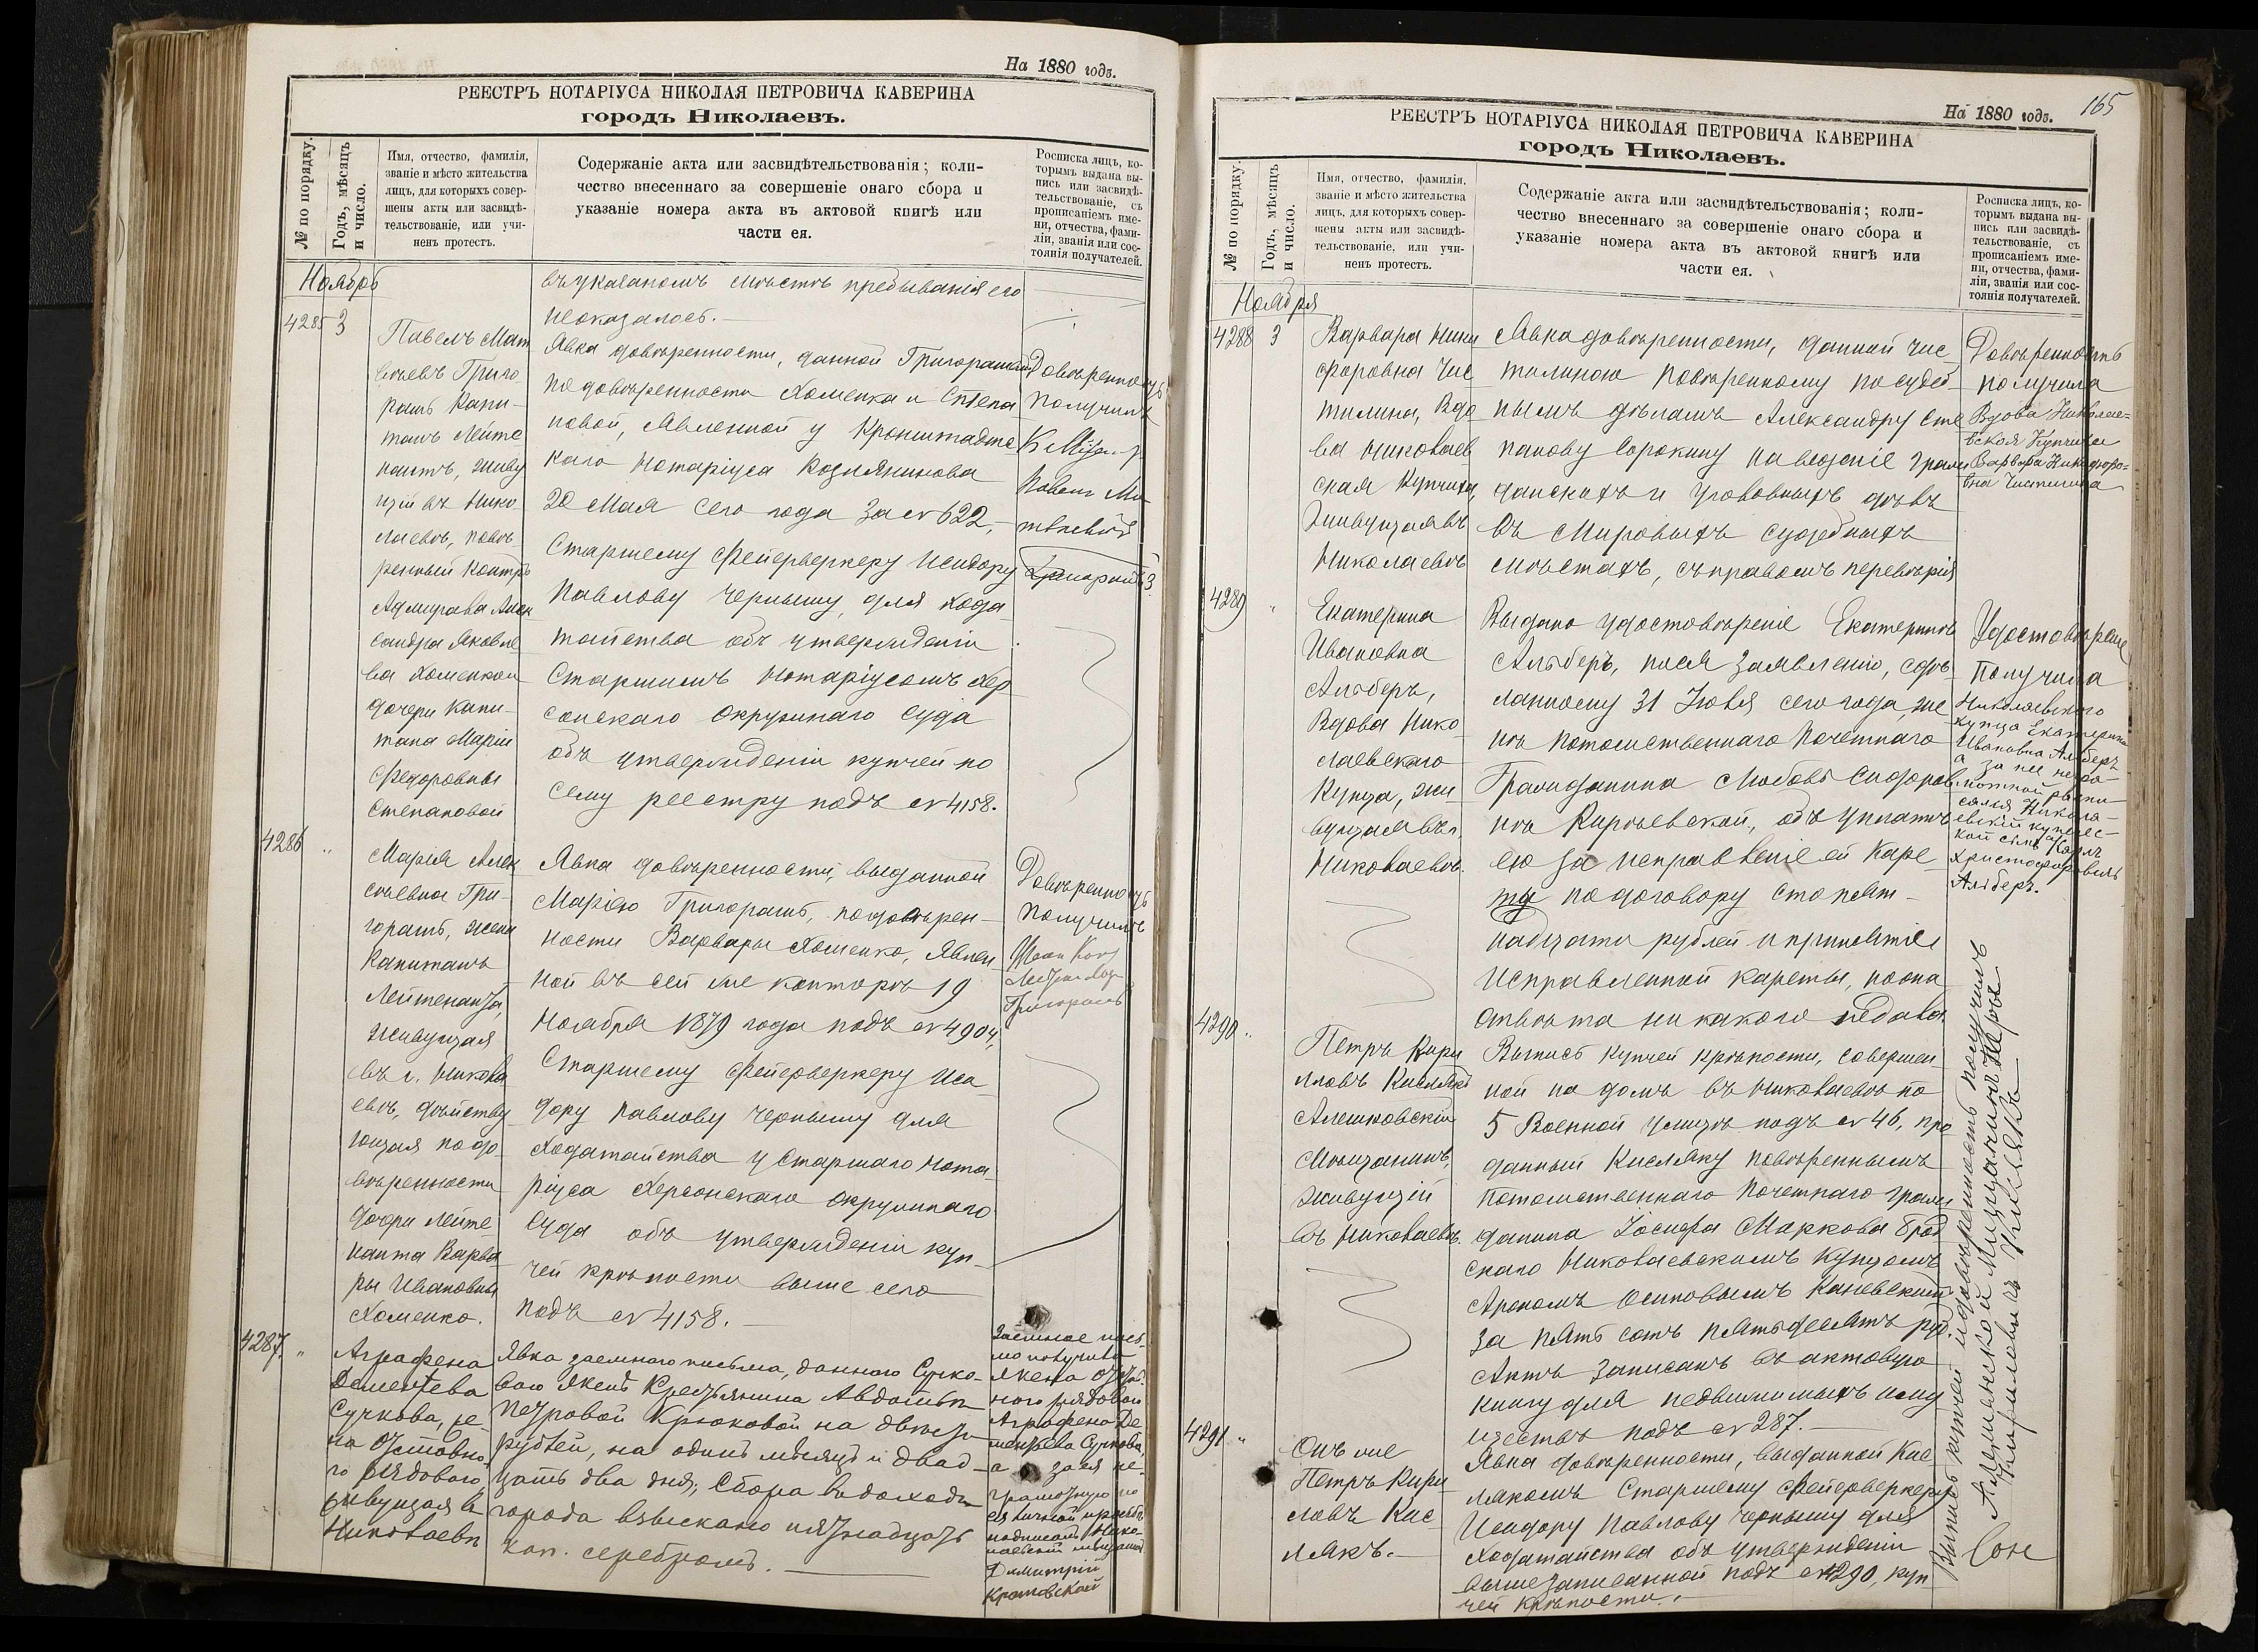 На 1880 годъ.
РЕЕСТРЪ НОТАРІУСА НИКОЛАЯ ПЕТРОВИЧА КАВЕРИНА
городъ Николаевъ.
№ по порядку.
Годъ, мѣсяцъ
и число.
Имя, отчество, фамилія,
званіе и мѣсто жительства
лицъ, для которыхъ совер-
шены акты или засвидѣ-
тельствованіе, или учи-
ненъ протестъ.
Содержаніе акта или засвидѣтельствованія; коли-
чество внесеннаго за совершеніе онаго сбора и
указаніе номера акта въ актовой книгѣ или
части ея.
Росписка лицъ, ко-
торымъ выдана вы-
пись или засвидѣ-
тельствованіе, съ
прописаніемъ име-
ни, отчества, фами-
ліи, званія или сос-
тоянія получателей.
Ноябрь
въ указаномъ мѣстѣ пребыванія его
неоказалось.
4285 3
Павелъ Мат
вѣевъ Григо
рашъ Капи-
танъ Лейте
нантъ, живу
щій въ Нико
лаевѣ, повѣ
ренный Контръ
Адмирала Алек
сандра Яковле
ва Хоменко и
дочери Капи-
тана Маріи
Федоровны
Степановой
Явка довѣренности, данной Григорашемъ
по довѣренности Хоменка и Степа
новой, Явленной у Кронштадтс
каго Нотаріуса Козлянинова
20 Мая сего года за № 622,
Старшему Фейерверкеру Исидору
Павлову Черныму для хода
тайства объ утвержденіи
Старшимъ Нотаріусомъ Хер
сонскаго Окружнаго Суда
объ утвержденіи купчей по
сему реестру подъ № 4158.
Довѣренность
получилъ
Павелъ Ма
твѣевъ
Григорашъ
4286 "
Марія Алек
сѣевна Гри-
горашъ, жена
Капитанъ
Лейтенанта,
живущая
въ г. Никола
евѣ, дѣйству
ющая по до
вѣренности
дочери Лейте
нанта Варва
ры Ивановны
Хоменко.
Явка довѣренности, выданной
Маріею Григорашъ, по довѣрен-
ности Варвары Хоменко, Явлен
ной въ сей же конторѣ 19
Ноября 1879 года подъ № 4904,
Старшему Фейерверкеру Иси
дору Павлову Черныму для
Ходатайства у Старшаго Нота
ріуса Херсонскаго Окружнаго
Суда объ утвержденіи куп-
чей крѣпости выше сего
подъ № 4158.
Довѣренность
получилъ
Григорашъ
4287. "
Аграфена
Дементьева
Сучкова, же-
на Отставно
го рядового,
живущая въ
Николаевѣ
Явка заемнаго письма, даннаго Сучко-
вою женѣ Крестьянина Авдотьѣ
Петровой Крюковой на двѣсти
рублей, на одинъ мѣсяцъ и двад-
цать два дня; Сбора въ доходъ
города взыскано пятнадцать
коп. серебромъ.
Заемное пись
мо получила
жена отстав
ного рядовой
Аграфена Де
ментьева Сучкова
а за ея не-
грамотную по
ея личной прозьбѣ
подписалъ Нико-
лаевскій мещанинъ
Димитрій
Кротовской
На 1880 годъ.
165
РЕЕСТРЪ НОТАРІУСА НИКОЛАЯ ПЕТРОВИЧА КАВЕРИНА
городъ Николаевъ.
№ по порядку.
Годъ, мѣсяцъ
и число.
Имя, отчество, фамилія,
званіе и мѣсто жительства
лицъ, для которыхъ совер-
шены акты или засвидѣ-
тельствованіе, или учи-
ненъ протестъ.
Содержаніе акта или засвидѣтельствованія; коли-
чество внесеннаго за совершеніе онаго сбора и
указаніе номера акта въ актовой книгѣ или
части ея.
Росписка лицъ, ко-
торымъ выдана вы-
пись или засвидѣ-
тельствованіе, съ
прописаніемъ име-
ни, отчества, фами-
ліи, званія или сос-
тоянія получателей.
Ноября
4288 3
Варвара Ники
форовна Чис
тилина, Вдо
ва Николаев
ская Купчиха,
Живущая въ
Николаевѣ
Явка довѣренности, данной Чис
тилиною повѣренному по судеб
нымъ дѣламъ Александру Сте
панову Сорокину на веденіе граж
данскихъ и уголовныхъ дѣлъ
въ Мировыхъ Судебныхъ
мѣстахъ, съ правомъ перевѣрія
Довѣренность
получила
Вдова Николае-
вская Купчиха
Варвара Никифоро-
вна Чистилина
4289 "
Екатерина
Ивановна
Альберъ,
Вдова Нико
лаевскаго
Купца, жи
вущая въ г.
Николаевѣ.
Выдано удостовѣреніе Екатеринѣ
Альберъ, по ея заявленію, сдѣ
ланному 31 Іюля сего года, же
нѣ Потомственнаго Почетнаго
Гражданина Любовѣ Сидоров
нѣ Кирьевской, объ уплатѣ
ею за исправленіе ей каре
ты по договору сто пят-
надцати рублей и принятіи
исправленной кареты, но она
отвѣта никакого недала.
Удостовѣреніе
получила
Николаевского
купца Екатерина
Ивановна Альберъ
а за нее негра-
мотной распи-
сался Никола-
евскій купечес-
кой сынъ Карлъ
Христофоровичъ
Альберъ.
4290 "
Петръ Кири
ловъ Кислякъ
Алешковскій
Мѣщанинъ,
живущій
въ Николаевѣ.
Выпись купчей крѣпости, совершен
ной на домъ въ Николаевѣ по
5 Военной улицѣ подъ № 46, про
данный Кисляку повѣреннымъ
Потомственнаго Почетнаго граж
данина Іосифа Маркова Брод
скаго Николаевскимъ Купцомъ
Арономъ Осиповымъ Каневскимъ
за пять сотъ пятьдесятъ руб.
Актъ записанъ въ актовую
книгу для недвижимыхъ иму
ществъ подъ № 287.
4291 "
Онъ же
Петръ Кири
ловъ Кис-
лякъ.
Явка довѣренности, выданной Кис
лякомъ Старшему Фейерверкеру
Исидору Павлову Черныму для
Ходатайства объ утвержденіи
вышезаписанной подъ № 4290, куп
чей крѣпости.
Выпись купчей и довѣренность получилъ
Алешковской Мищанинъ Петръ
Кириловичъ Кислякъ